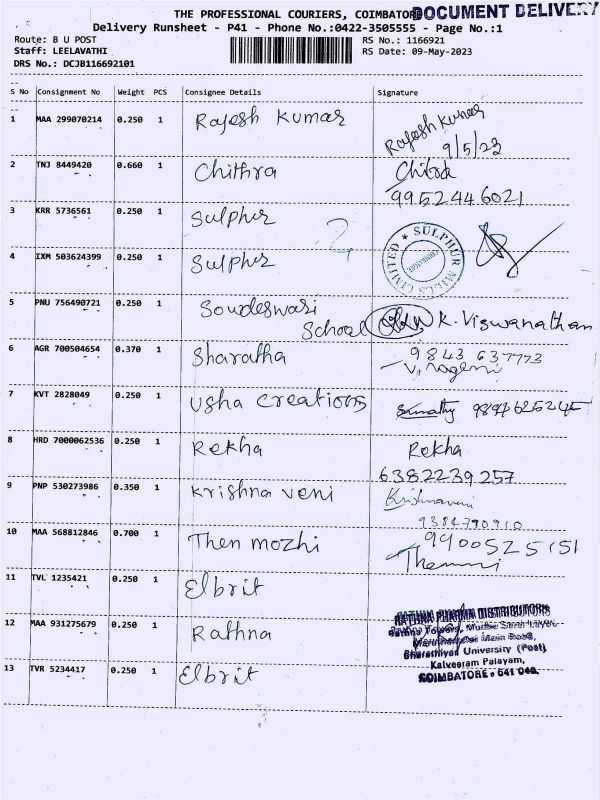 THE PROFESSIONAL COURIERS, COIMBATORE
DOCUMENT DELIVERY
Delivery Runsheet - P41 - Phone No.:0422-3505555 - Page No.:1
Route: B U POST
RS No.: 1166921
Staff: LEELAVATHI
RS Date: 09-May-2023
DRS No.: DCJB116692101
S No Consignment No Weight PCS Consignee Details Signature
1 MAA 299070214 0.250 1 Rajesh Kumar Rajesh Kumar
9/5/23
2 TNJ 8449420 0.660 1 Chithra Chitra
9952446021
3 KRR 5736561 0.250 1 Sulphur
4 IXM 503624399 0.250 1 Sulphur
SULPHUR MILLS LIMITED
5 PNU 756490721 0.250 1 Soudeswari
School K. Viswanathan
9843 637773
6 AGR 700504654 0.370 1 Sharatha
7 KVT 2828049 0.250 1 Usha Creations Sumathy
8 HRD 7000062536 0.250 1 Rekha Rekha
6382239257
9 PNP 530273986 0.350 1 Krishna veni Krishnaveni
9384790910
10 MAA 568812846 0.700 1 Then mozhi 9900525151
11 TVL 1235421 0.250 1 Elbrit
12 MAA 931275679 0.250 1 Rathna
RATHNA PHARMA DISTRIBUTORS
Rathna Towers,
Maruthamalai Main Road,
Bharathiyar University (Post)
Kalveeram Palayam,
COIMBATORE - 641 046.
13 TVR 5234417 0.250 1 Elbrit